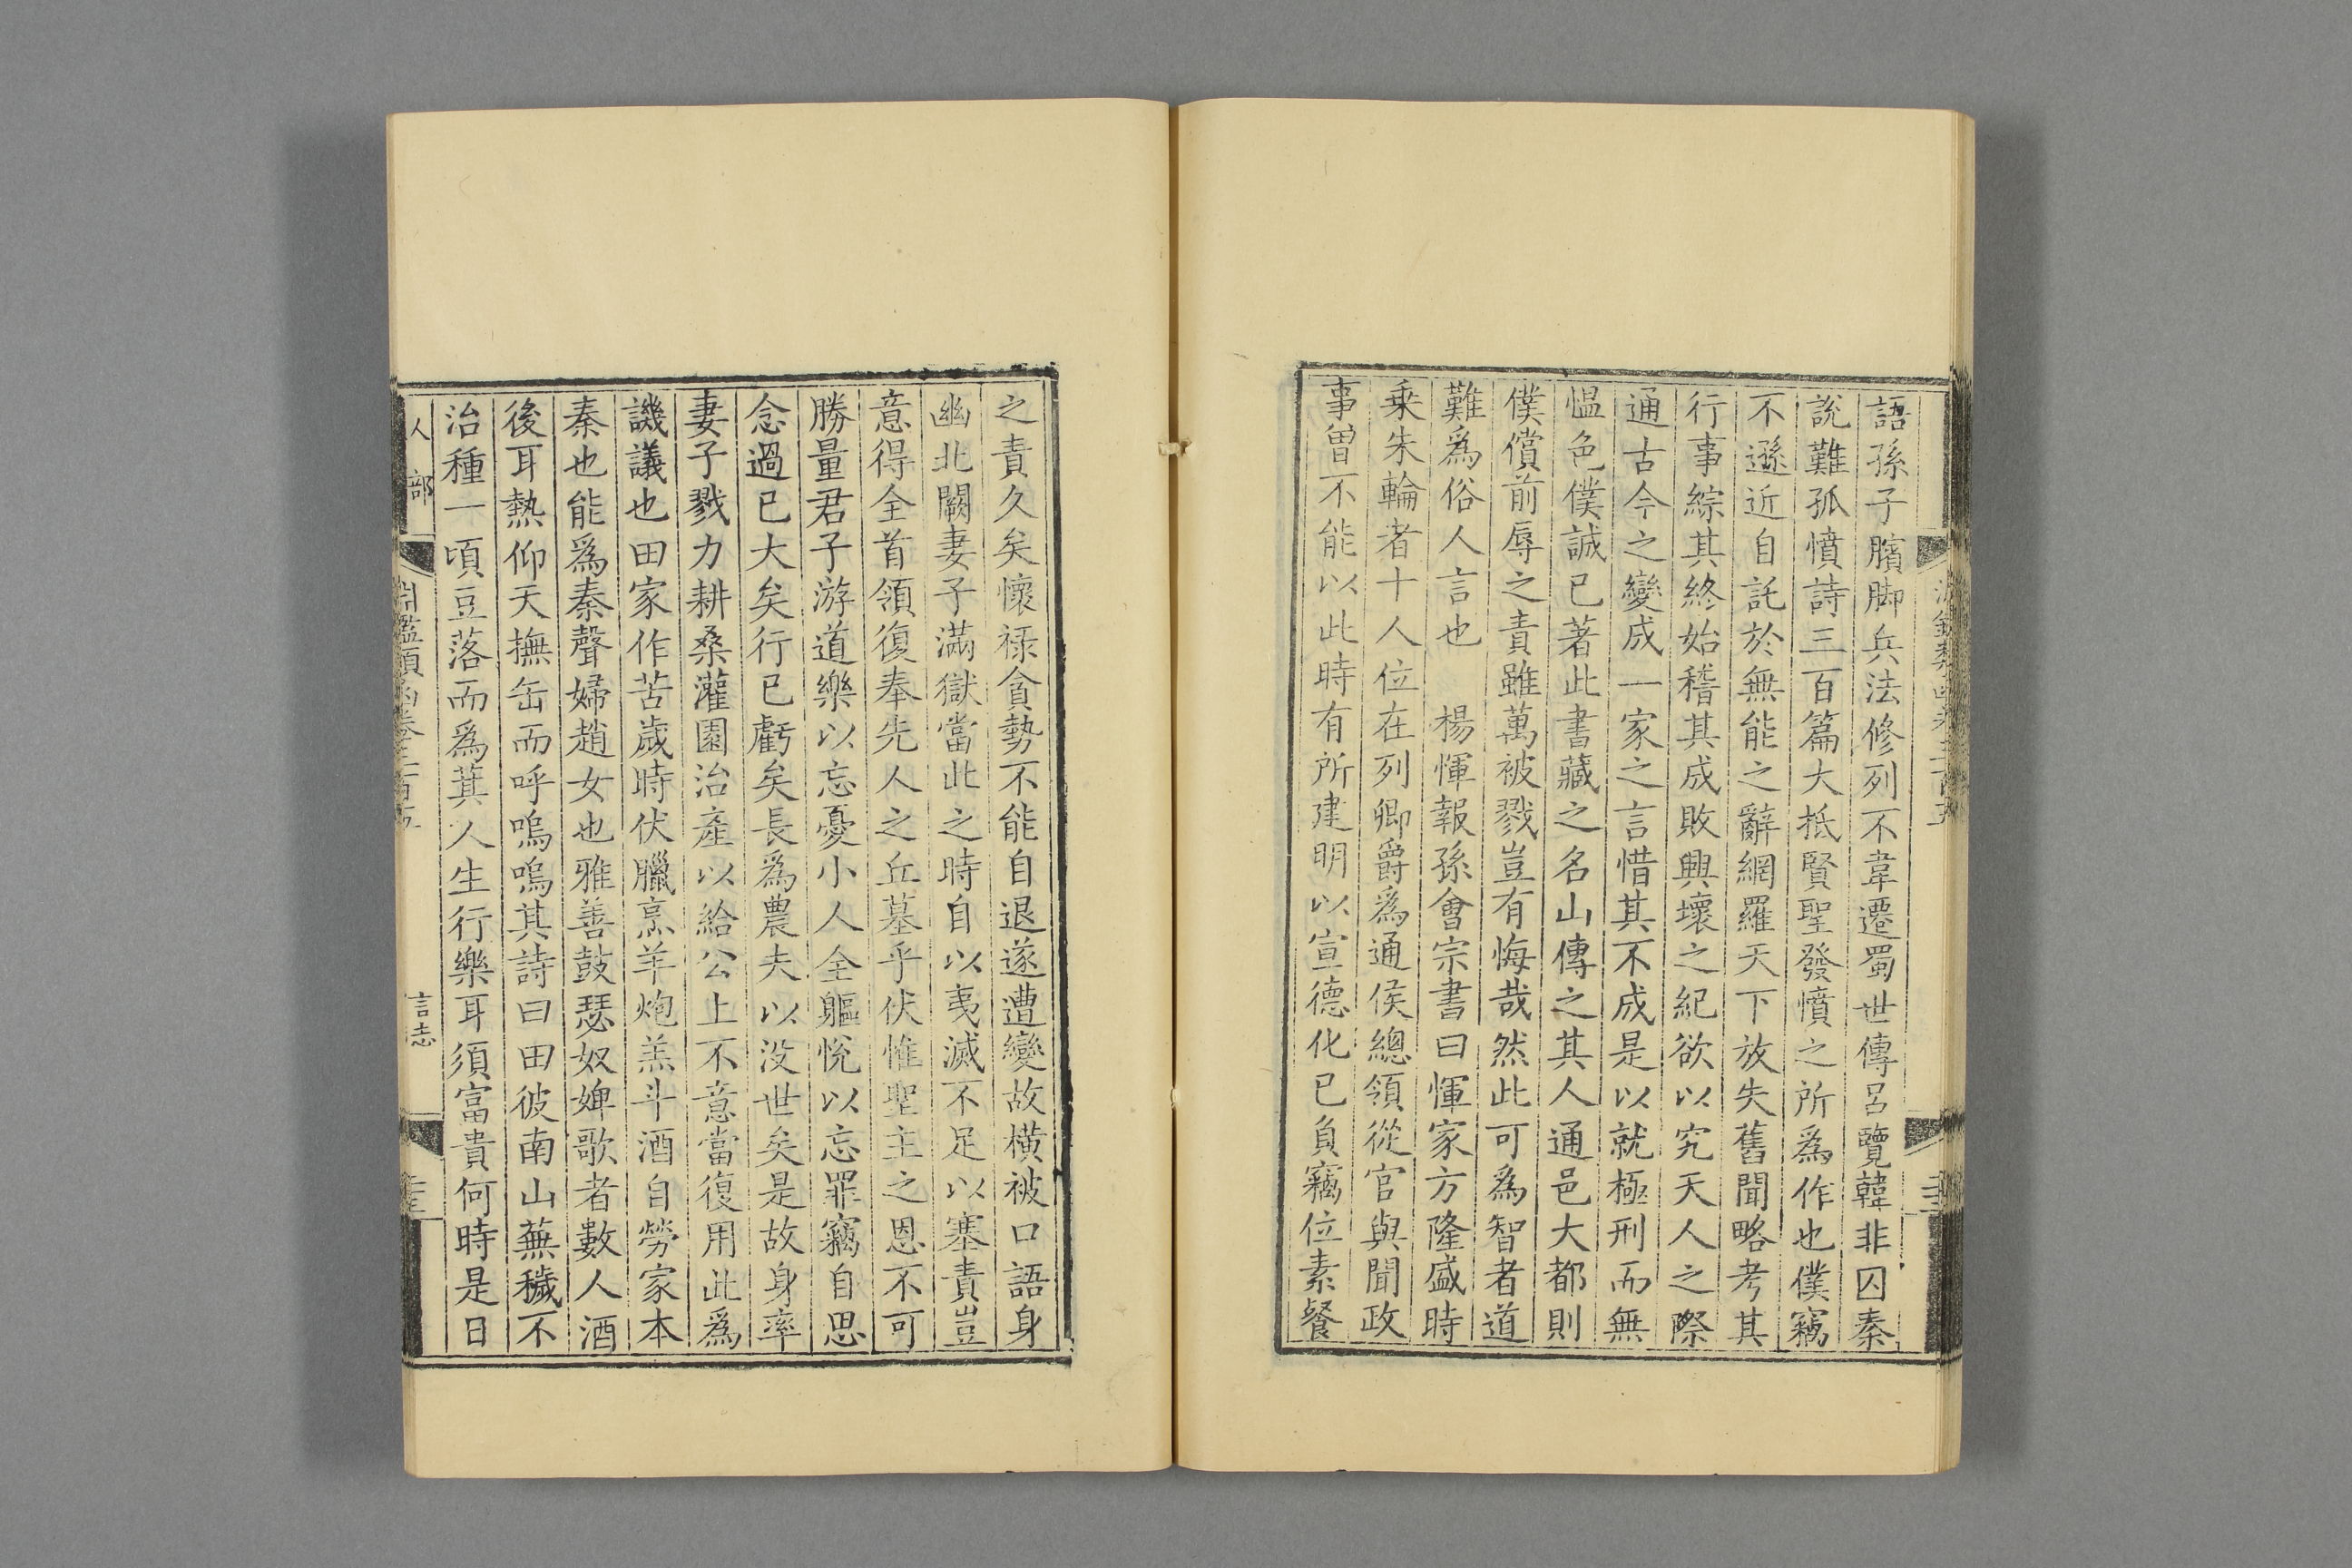 語孫子臏脚兵法修列不韋遷蜀世傳呂覽韓非囚秦
說難孤憤詩三百篇大抵賢聖發憤之所爲作也僕竊
不遜近自託於無能之辭網羅天下放失舊聞略考其
行事綜其終始稽其成敗興壞之紀欲以究天人之際
通古今之變成一家之言惜其不成是以就極刑而無
慍色僕誠已著此書藏之名山傳之其人通邑大都則
僕償前辱之責雖萬被戮豈有悔哉然此可爲智者道
難爲俗人言也　楊惲報孫會宗書曰惲家方隆盛時
乗朱輪者十人位在列卿爵爲通侯總領從官與聞政
事曽不能以此時有所建明以宣德化已負竊位素餐
之責久矣懷祿貪勢不能自退遂遭變故橫被口語身
幽北闕妻子滿獄當此之時自以夷滅不足以塞責豈
意得全首領復奉先人之丘墓乎伏惟聖主之恩不可
勝量君子游道樂以忘憂小人全軀悅以忘罪竊自思
念過已大矣行已虧矣長爲農夫以没世矣是故身率
妻子戮力耕桑灌園治產以給公上不意當復用此爲
譏議也田家作苦歲時伏臘烹羊炮羔斗酒自勞家本
秦也能爲秦聲婦趙女也雅善鼓瑟奴婢歌者數人酒
後耳熱仰天撫缶而呼嗚嗚其詩曰田彼南山蕪穢不
治種一頃豆落而爲萁人生行樂耳須富貴何時是日
人部
淵鑑類函卷三百五
言志